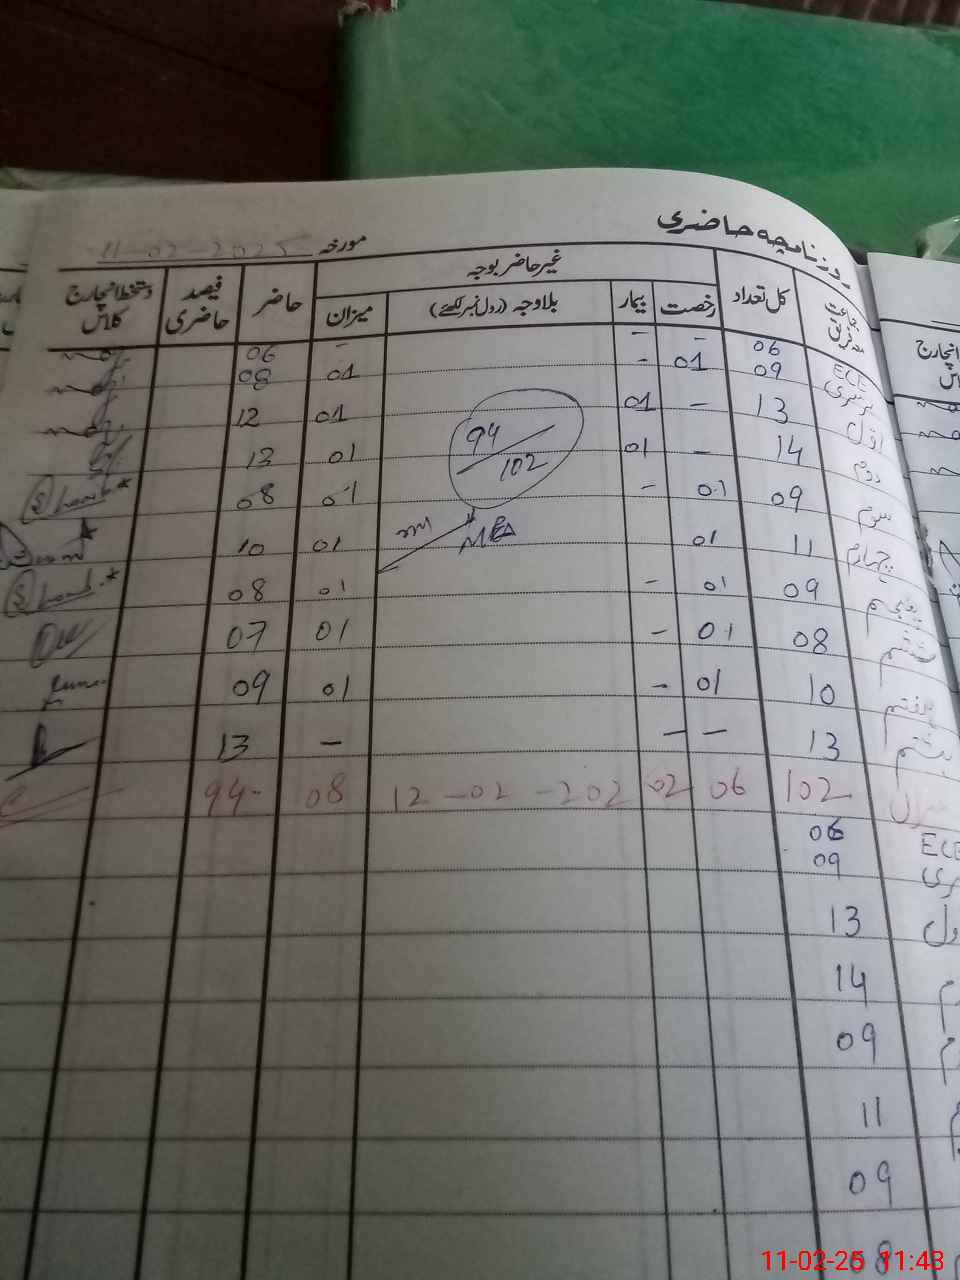 روزنامچہ حاضری
مورخہ 11-02-2025
جماعت معہ فریق کل تعداد غیر حاضر بوجہ حاضر فیصد حاضری دستخط انچارج کلاس
رخصت بیمار بلاوجہ (رول نمبر لکھئے) میزان
ECE 06 - - - 06
نرسری 09 01 - 01 08
اول 13 - 01 01 12
دوم 14 - 01 01 13
سوم 09 01 - 01 08
چہارم 11 01 01 10
پنجم 09 01 - 01 08
ششم 08 01 - 01 07
ہفتم 10 01 - 01 09
ہشتم 13 - - - 13
94/102
MEA
میزان 102 06 02 12-02-202 08 94-
ECE 06
09
13
14
09
11
09
08
11-02-25 11:43